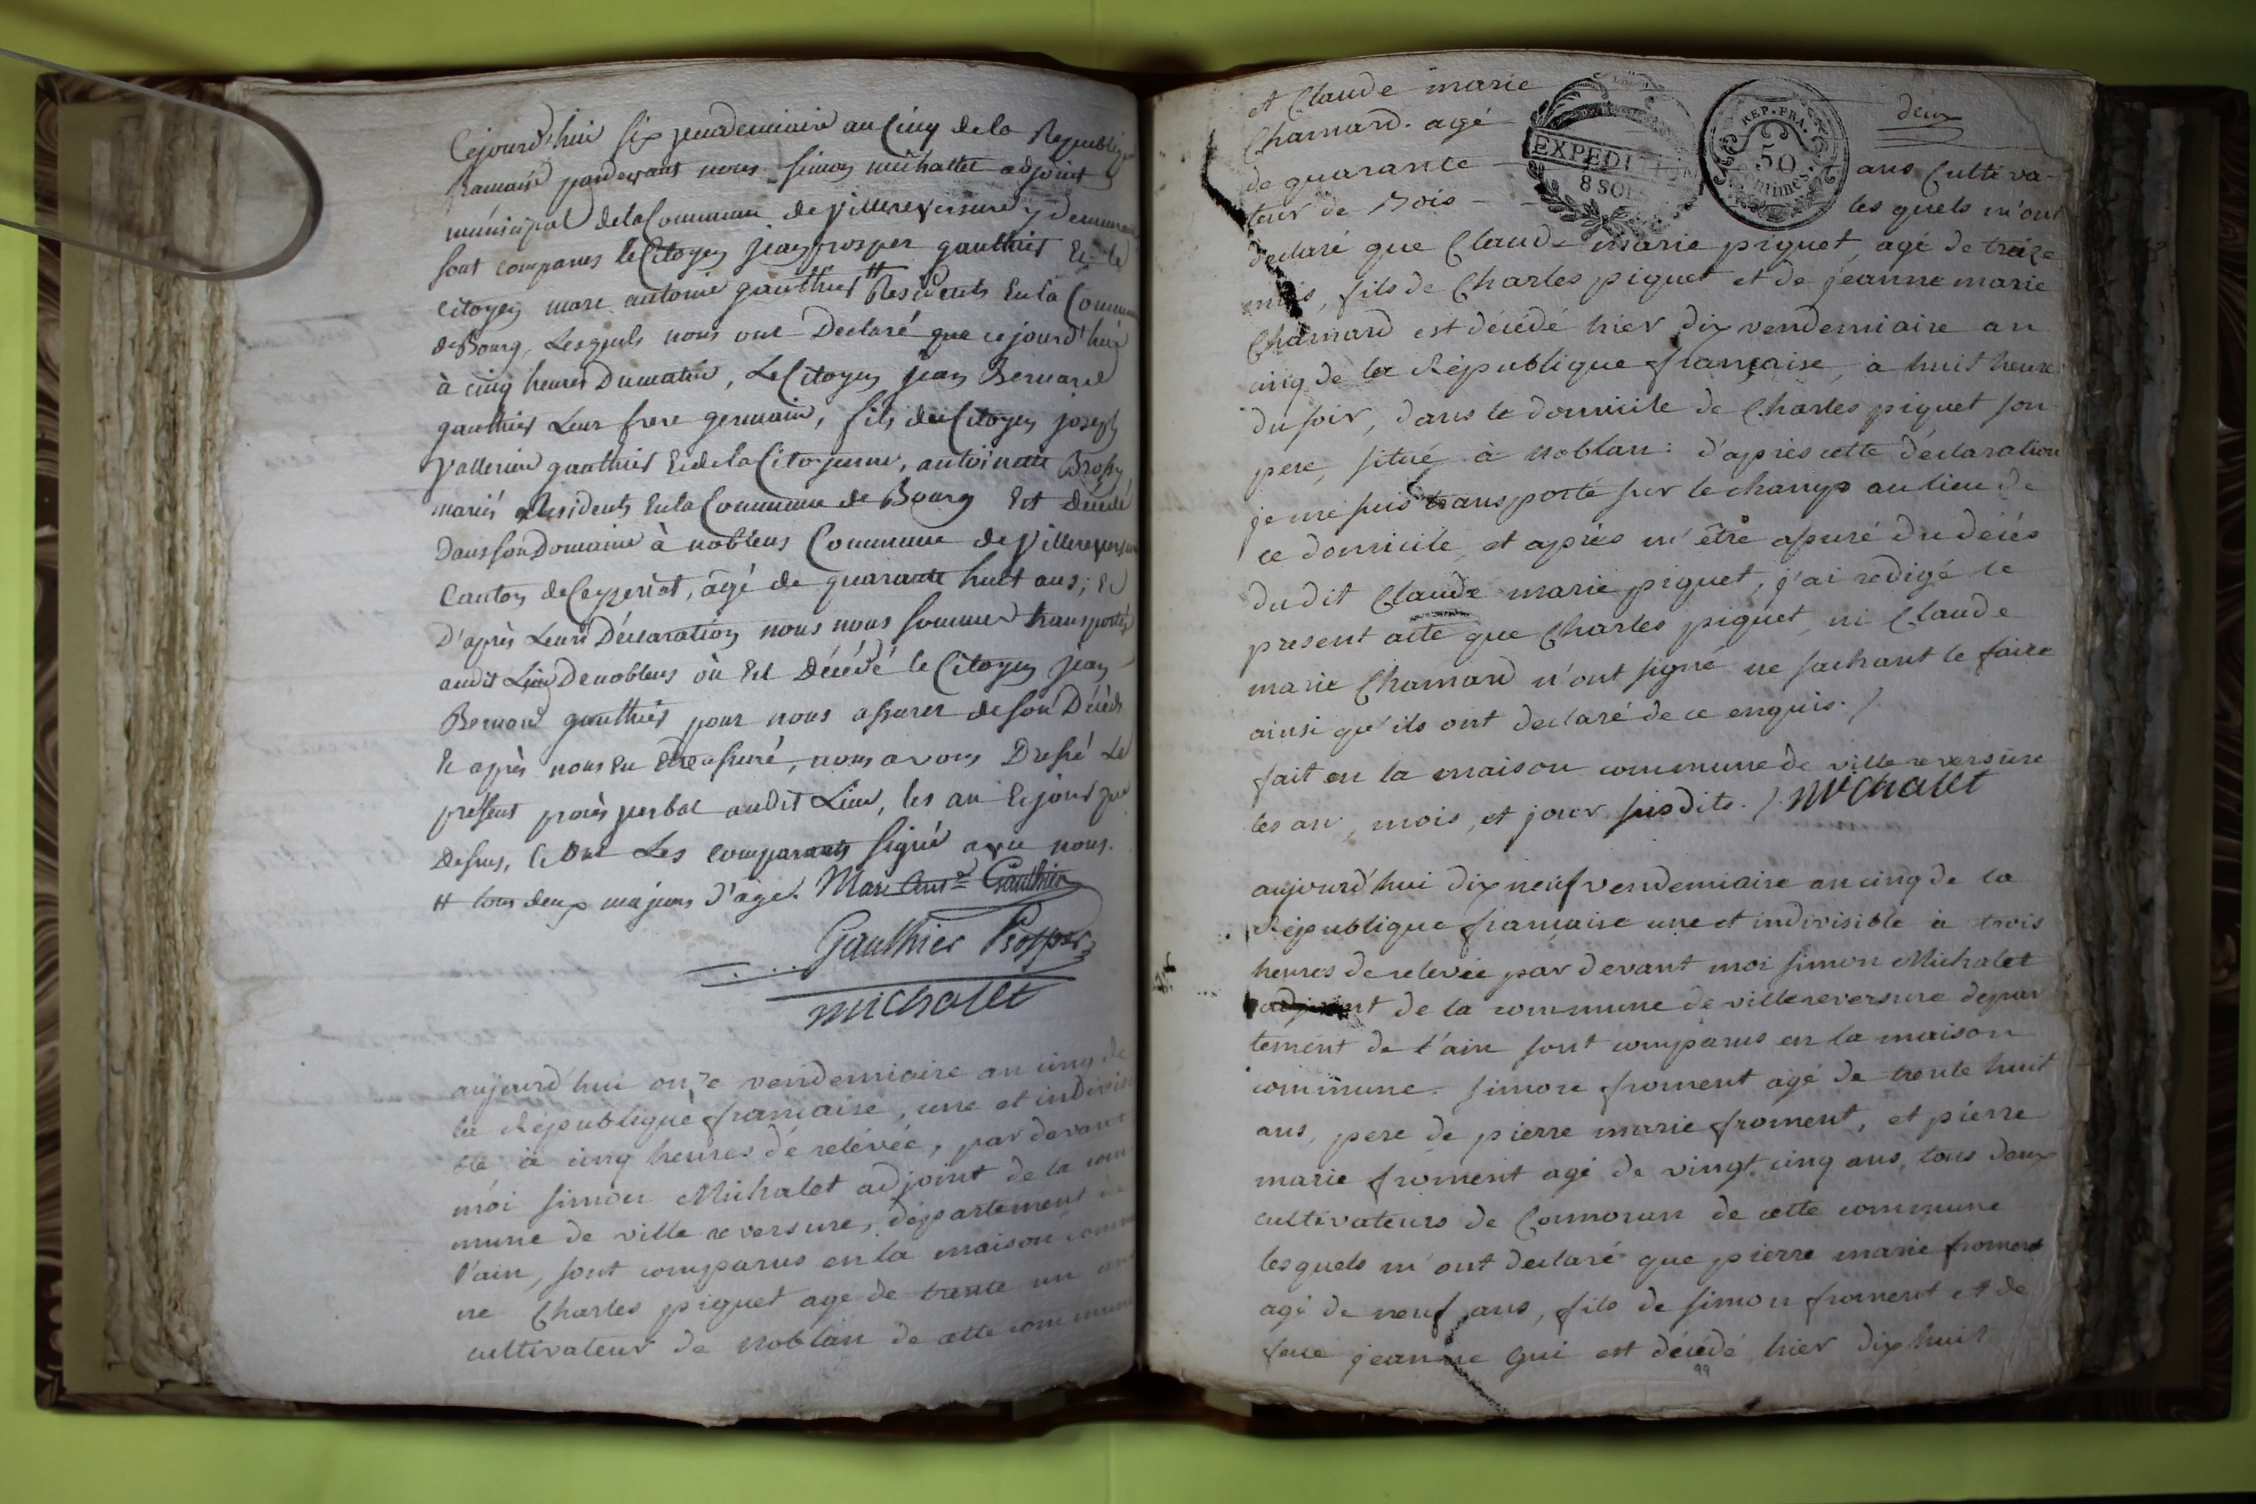 Cejourd'hui six vendemiaire an Cinq de la Republique
francaise pardevant nous Simon michallet adjoint
municipal de la Commune de Villereversure y demeurant
sont comparus le Citoyen jean prosper gauthier Et le
citoyen marc antoine gauthier # Residents En la Commune
de Bourg, Lesquels nous ont Declaré que ce jourd'hui
à cinq heures Du matin, Le Citoyen jean Bernard
gauthier Leur frere germain, fils du Citoyen joseph
Vallerien gauthier Et de la Citoyenne, antoinette Brossy
mariés Residents En la Commune de Bourg Est decedé
Dans son Domaine à noblens Commune de Villereversure
Canton de Ceyzeriat, âgé de quarante huit ans; Et
D'après Leurs Déclaration nous nous sommes transportés
audit Lieu De noblens où Est Décédé le Citoyen jean
Bernard gauthier pour nous assurer de son Décéds
Et après nous En Etre assuré, nous avons Dressé Le
present procès verbal audit Lieu, les an Et jour que
Dessus, Et ont Les comparants signé avec nous.
# tous deux majeurs d'age. Marc Ant.e Gauthier
Gauthier Prosper
michallet
aujourd'hui onze vendemiaire an cinq de
la République francaise, une et indivisi
ble à cinq heures de relévée, par devant
moi simon Michalet adjoint de la com
mune de ville reversure, département de
l'ain, sont comparus en la maison commu
ne Charles piquet agé de trente un ans
cultivateur de noblan de cette commune
deux
et Claude marie
Chamard. agé
de quarante
EXPEDITION
8 SOLS
REP. FRA.
50
CENTIMES.
ans Cultiva-
teur de Nois - - les quels m'ont
declaré que Claude marie piquet, agé de treize
mois, fils de Charles piquet et de jeanne marie
Chamard est décédé hier dix vendemiaire an
cinq de la République française, à huit heures
du soir, dans le domicile de Charles piquet son
pere, situé à noblan: d'après cette déclaration
je me suis transporté sur le champ au lieu de
ce domicile, et après m'être assuré du décés
dudit Claude marie piquet, j'ai redigé le
present acte que Charles piquet, ni Claude
marie Chamard n'ont signé ne sachant le faire
ainsi qu'ils ont declaré de ce enquis. /
fait en la maison commune de ville reversure
les an, mois, et jour susdits. / Michallet
aujourd'hui dix neuf vendemiaire an cinq de la
République francaise une et indivisible à trois
heures de relevée par devant moi simon Michalet
adjoint de la commune de villereversure depar
tement de l'ain sont comparus en la maison
commune. simon froment agé de trente huit
ans, pere de pierre marie froment, et pierre
marie froment agé de vingt cinq ans, tous deux
cultivateurs de Cormoran de cette commune
lesquels m'ont declaré que pierre marie froment
agé de neuf ans, fils de simon froment et de
feue jeanne Gui est décédé hier dix huit